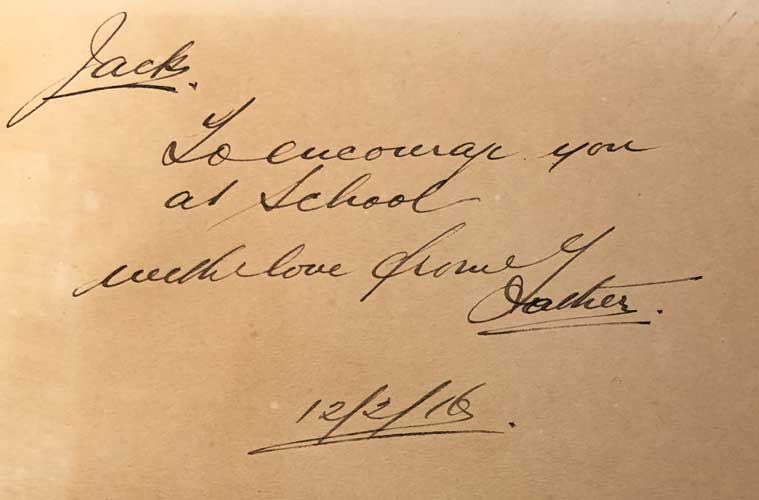 Jack.
To encourage you
at School
with love from
Father.
12/2/16.